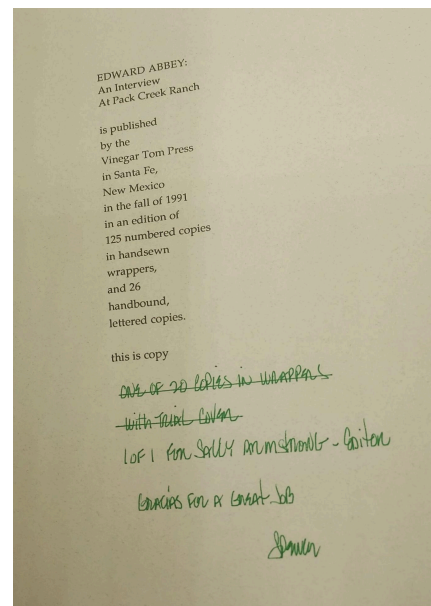 EDWARD ABBEY:
An Interview
At Pack Creek Ranch
is published
by the
Vinegar Tom Press
in Santa Fe,
New Mexico
in the fall of 1991
in an edition of
125 numbered copies
in handsewn
wrappers,
and 26
handbound,
lettered copies.
this is copy
ONE OF 20 COPIES IN WRAPPERS
WITH TRIAL COVER
1 OF 1 FOR SALLY ARMSTRONG - Editor
GRACIAS FOR A GREAT JOB